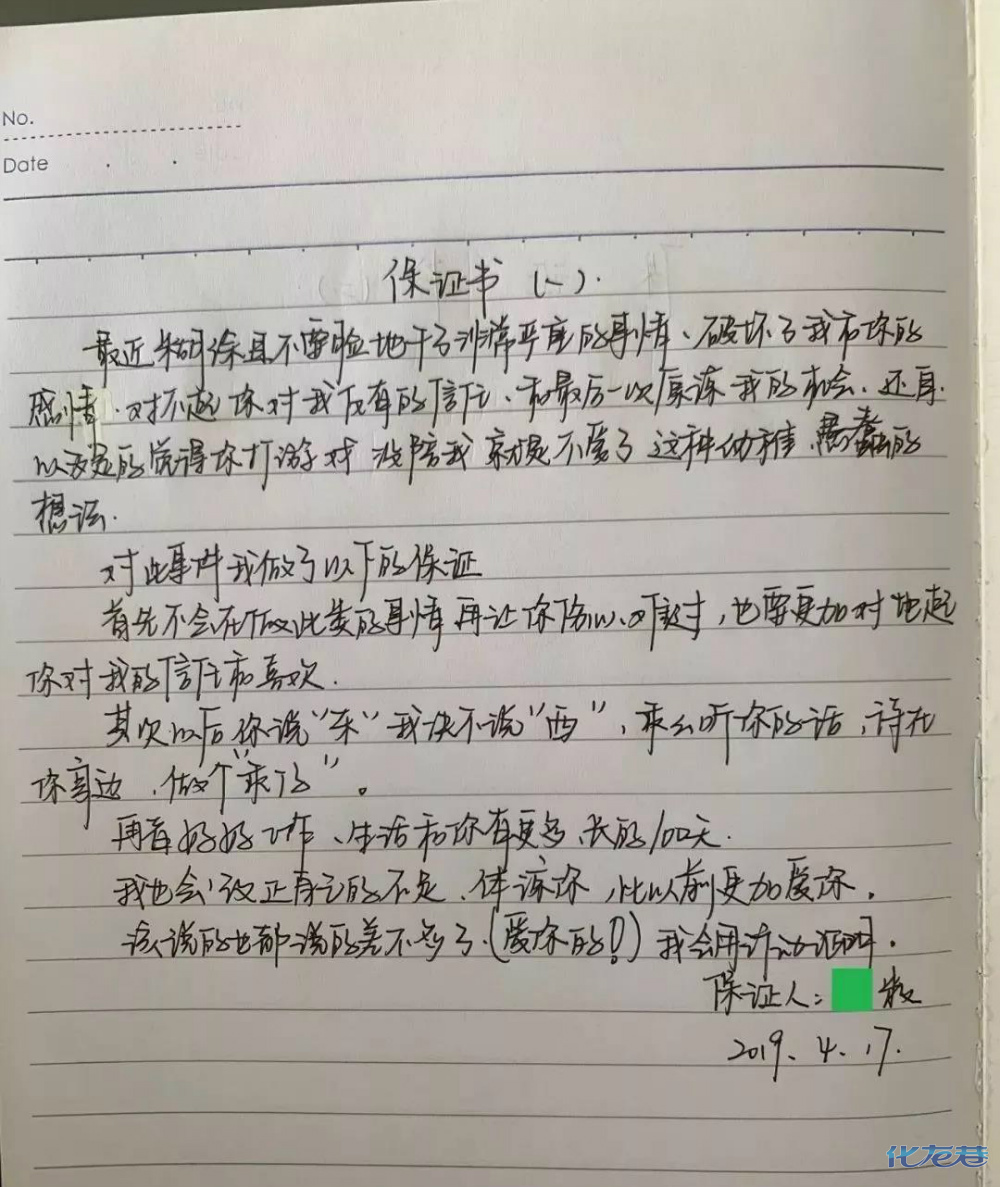 No.
Date
保证书 (一).
最近 不要脸地干了非常严重的事情、破坏了我和你的
感情.对不起你对我仅有的信任、和最后一次原谅我的机会.还有
以及是的觉得你打游戏时没陪我就是不爱了这种幼稚.愚蠢的
想法.
对此事件我做了以下的保证
首先不会在做此类的事情再让你伤心、难过,也要更加对地起
你对我的信任和喜欢.
其次以后你说"东"我决不说"西",乖乖听你的话,待在
你身边.做个"乖仔"。
再者好好工作、生活和你有更多、长的100天.
我也会改正自己的不足.体谅你,比以前更加爱你.
该说的也都说的差不多了.(爱你的!)我会用行动证明.
保证人:
2019.4.17.
化龙巷